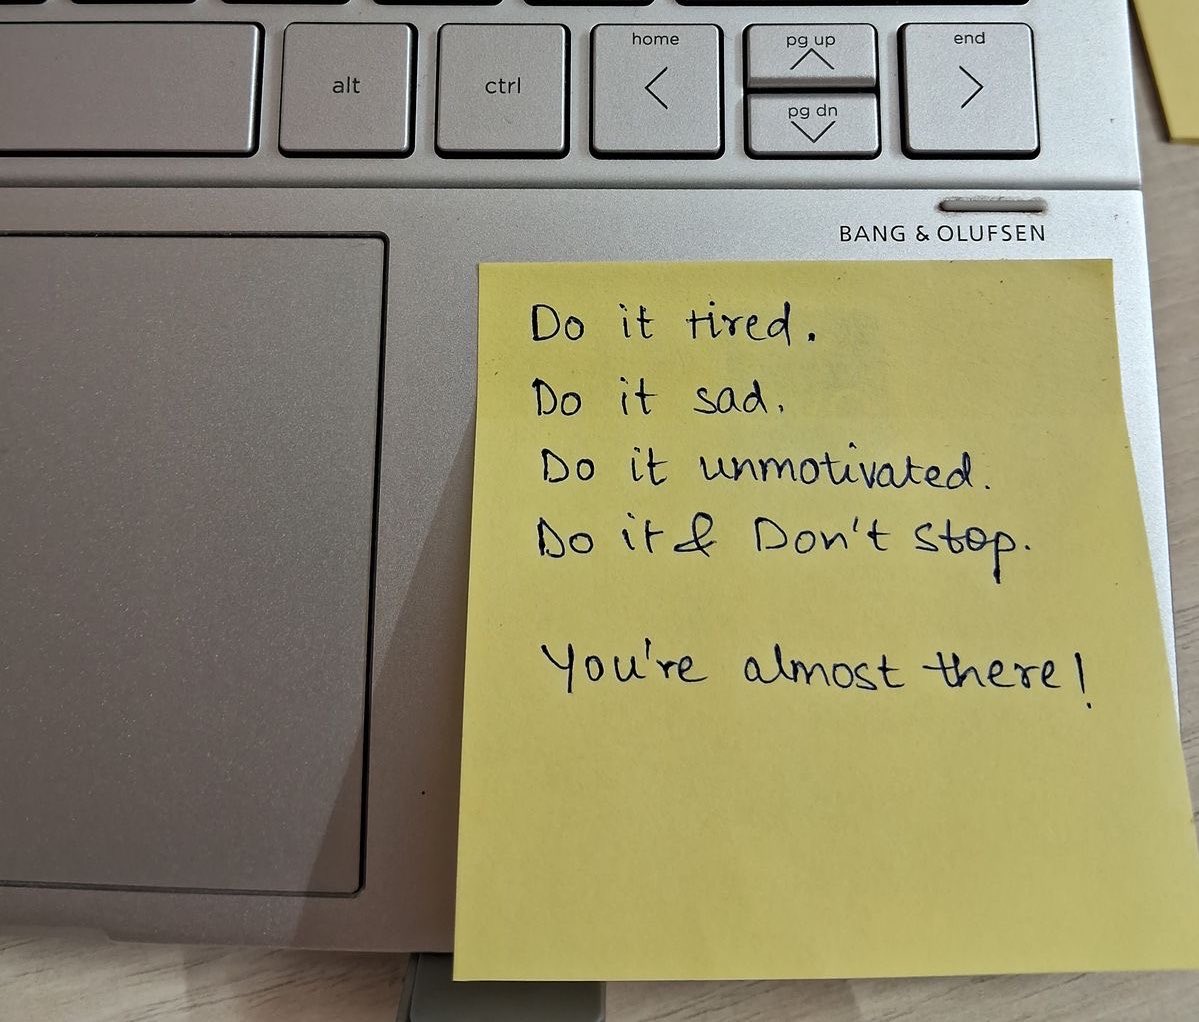 home pg up end
alt ctrl
pg dn
BANG & OLUFSEN
Do it tired.
Do it sad.
Do it unmotivated.
Do it & Don't stop.
You're almost there!